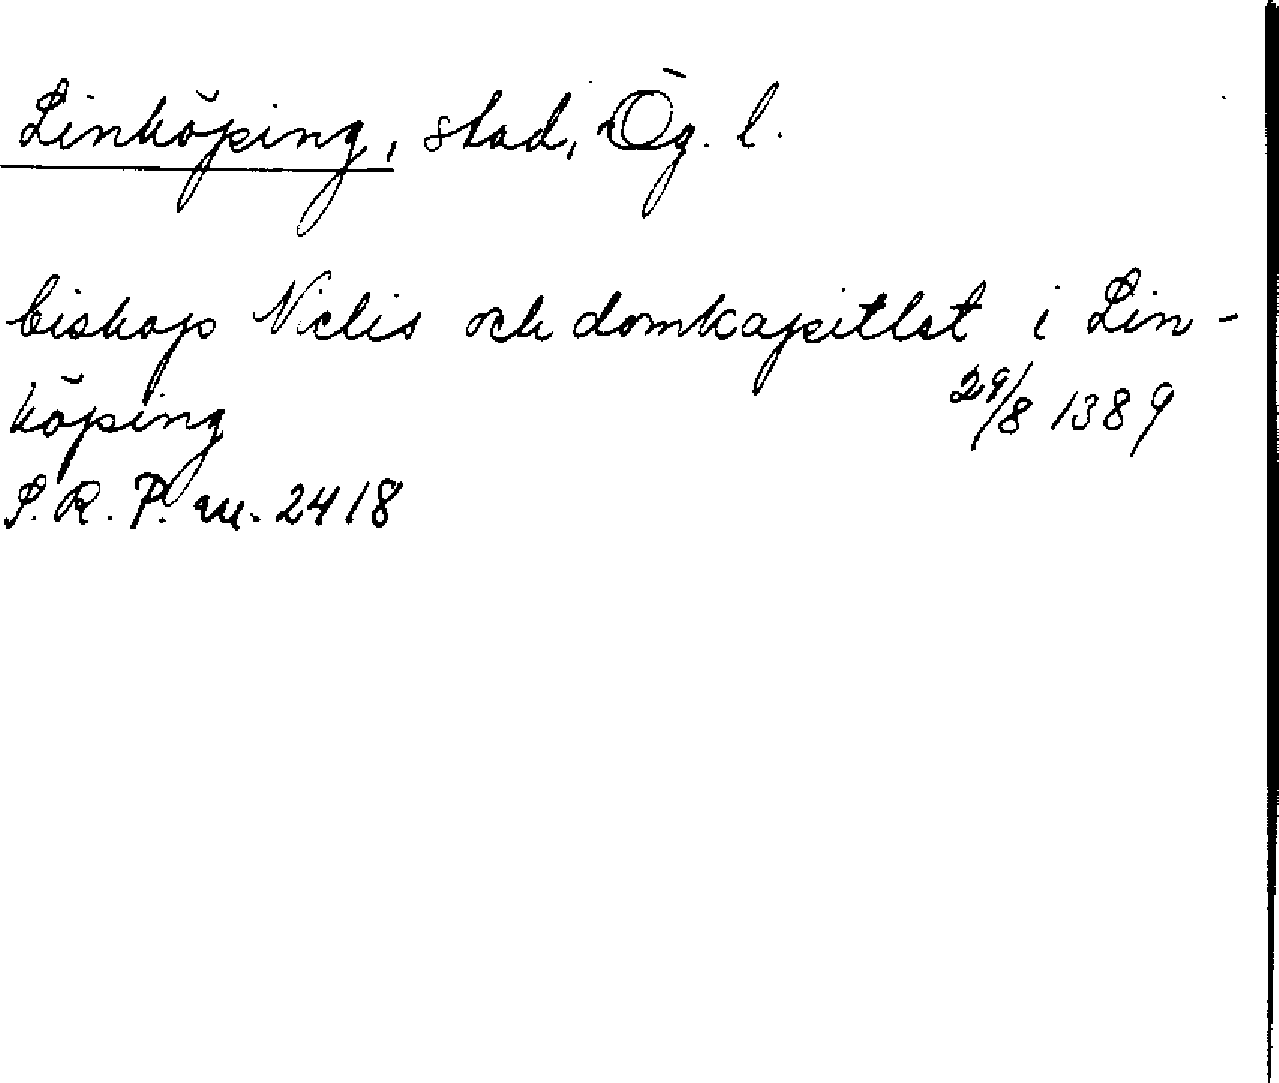 Linköping, stad, Ög. l.
biskop Niclis och domkapitlet i Lin-
köping 29/8 1389
S.R.P. nr. 2418